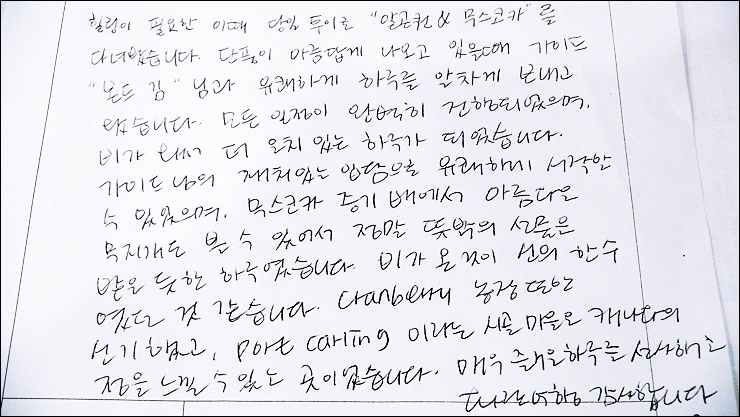 힐링이 필요한 이때 당일 투어로 "알곤퀸 & 무스코카"를
다녀왔습니다. 단풍이 아름답게 나오고 있을때 가이드
"본드 김"님과 유쾌하게 하루를 알차게 보내고
왔습니다. 모든 일정이 완벽히 진행되었으며,
비가 와서 더 운치 있는 하루가 되었습니다.
가이드 님의 재치있는 입담으로 유쾌하게 시작할
수 있었으며, 무스코카 증기 배에서 아름다운
무지개도 볼 수 있어서 정말 뜻밖의 선물을
받은 듯한 하루였습니다. 비가 온 것이 신의 한수
였던 것 같습니다. Cranberry 농장 또한
신기했고, port carling 이라는 시골 마을도 캐나다의
정을 느낄 수 있는 곳이었습니다. 매우 즐거운 하루를 선사해준
여행 감사합니다